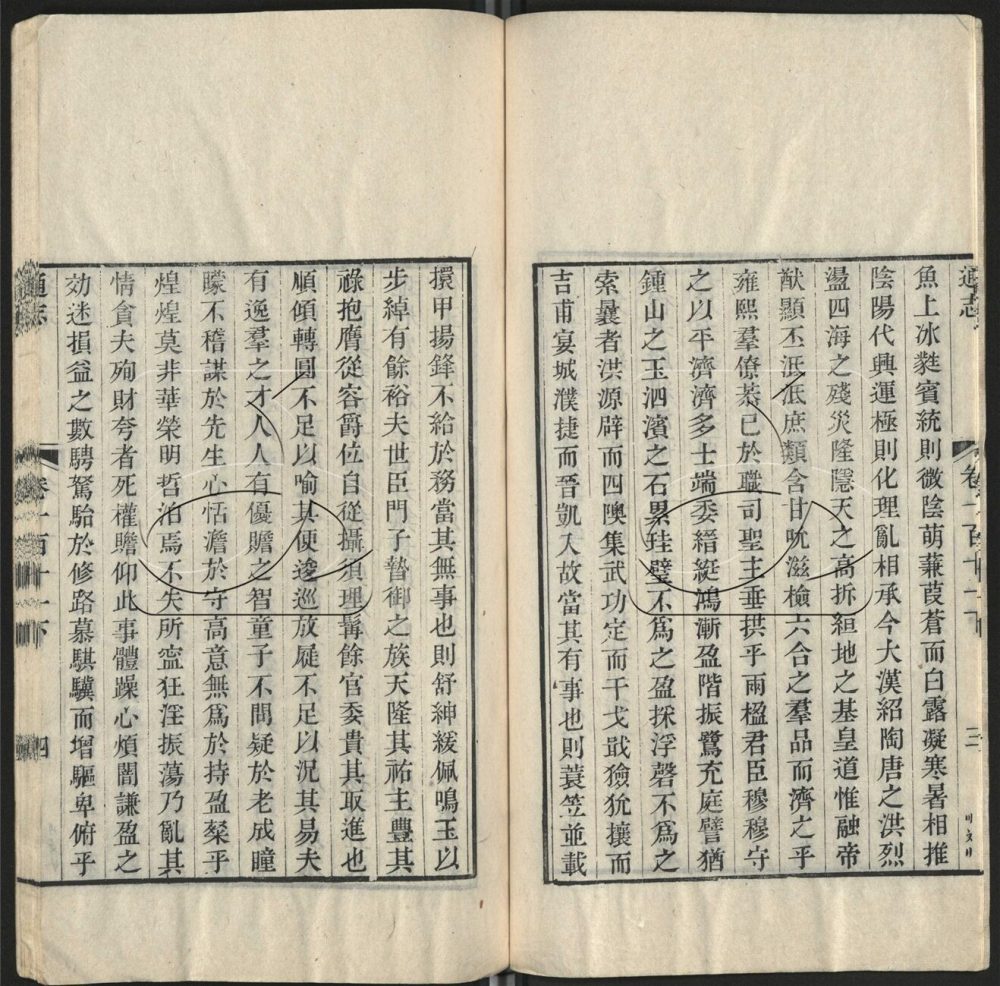 通志
魚上冰蕤賓統則微陰萌蒹葭蒼而白露凝寒暑相推
陰陽代興運極則化理亂相承今大漢紹陶唐之洪烈
盪四海之殘災隆隱天之高拆絙地之基皇道惟融帝
猷顯丕泜泜庶類含甘吮滋檢六合之羣品而濟之乎
雍熙羣僚恭已於職司聖主垂拱乎兩楹君臣穆穆守
之以平濟濟多士端委縉綎鴻漸盈階振鷺充庭譬猶
鍾山之玉泗濱之石累珪璧不爲之盈採浮磬不爲之
索曩者洪源辟而四隩集武功定而干戈戢獫狁攘而
吉甫宴城濮捷而晉凱入故當其有事也則蓑笠並載
卷一百十一下
三
擐甲揚鋒不給於務當其無事也則舒紳緩佩鳴玉以
步綽有餘裕夫世臣門子暬御之族天隆其祐主豐其
祿抱膺從容爵位自從攝須理髯餘官委貴其取進也
順傾轉圓不足以喻其便逡巡放屣不足以況其易夫
有逸羣之才人人有優贍之智童子不問疑於老成瞳
矇不稽謀於先生心恬澹於守高意無爲於持盈粲乎
煌煌莫非華榮明哲泊焉不失所寍狂淫振蕩乃亂其
情貪夫殉財夸者死權瞻仰此事體躁心煩闇謙盈之
効迷損益之數騁駑駘於修路慕騏驥而增驅卑俯乎
通志
卷一百十一下
四